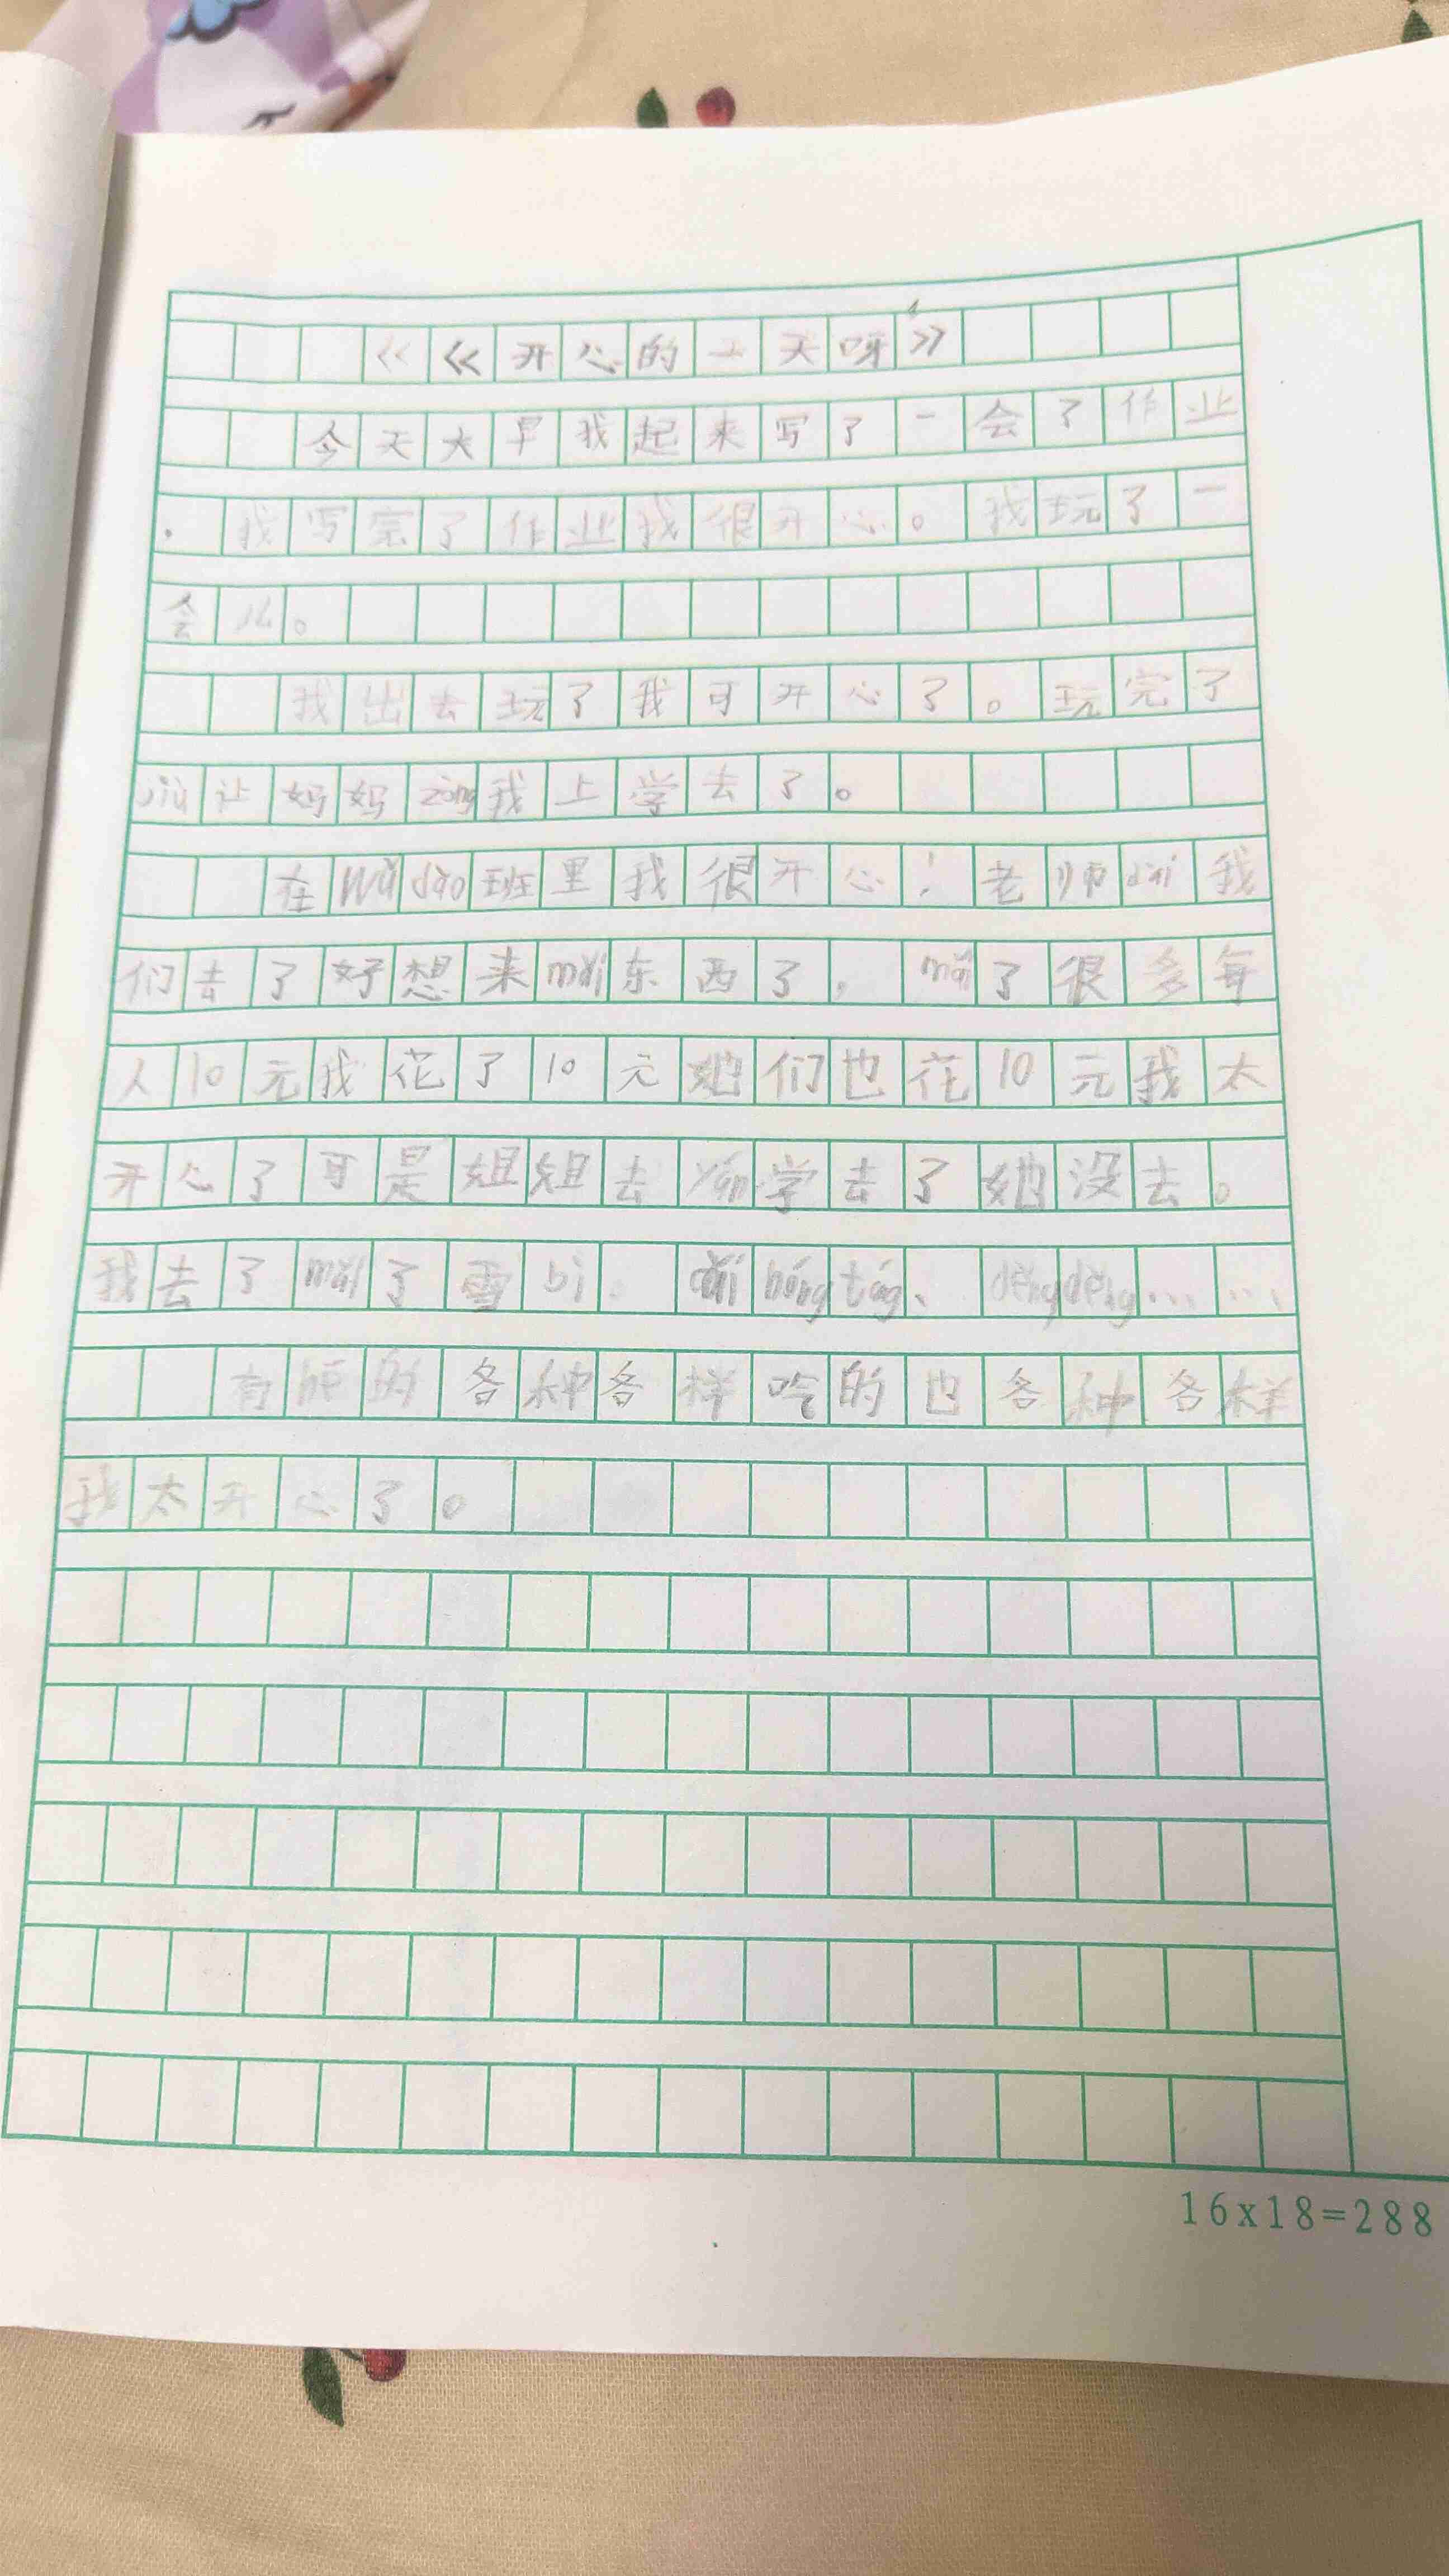 《《开心的一天呀》
今天大早我起来写了一会了作业
.我写完了作业我很开心。我玩了一
会儿。
我出去玩了我可开心了。玩完了
jiù让妈妈zòng我上学去了。
在wǔ dǎo班里我很开心！老师dài我
们去了好想来mǎi东西了，mǎi了很多每
人10元我花了10元她们也花10元我太
开心了可是姐姐去yán学去了她没去。
我去了mǎi了雪bì。cǎi hóng táng、děng děng……
有的各种各样吃的也各种各样
我太开心了。
16x18=288